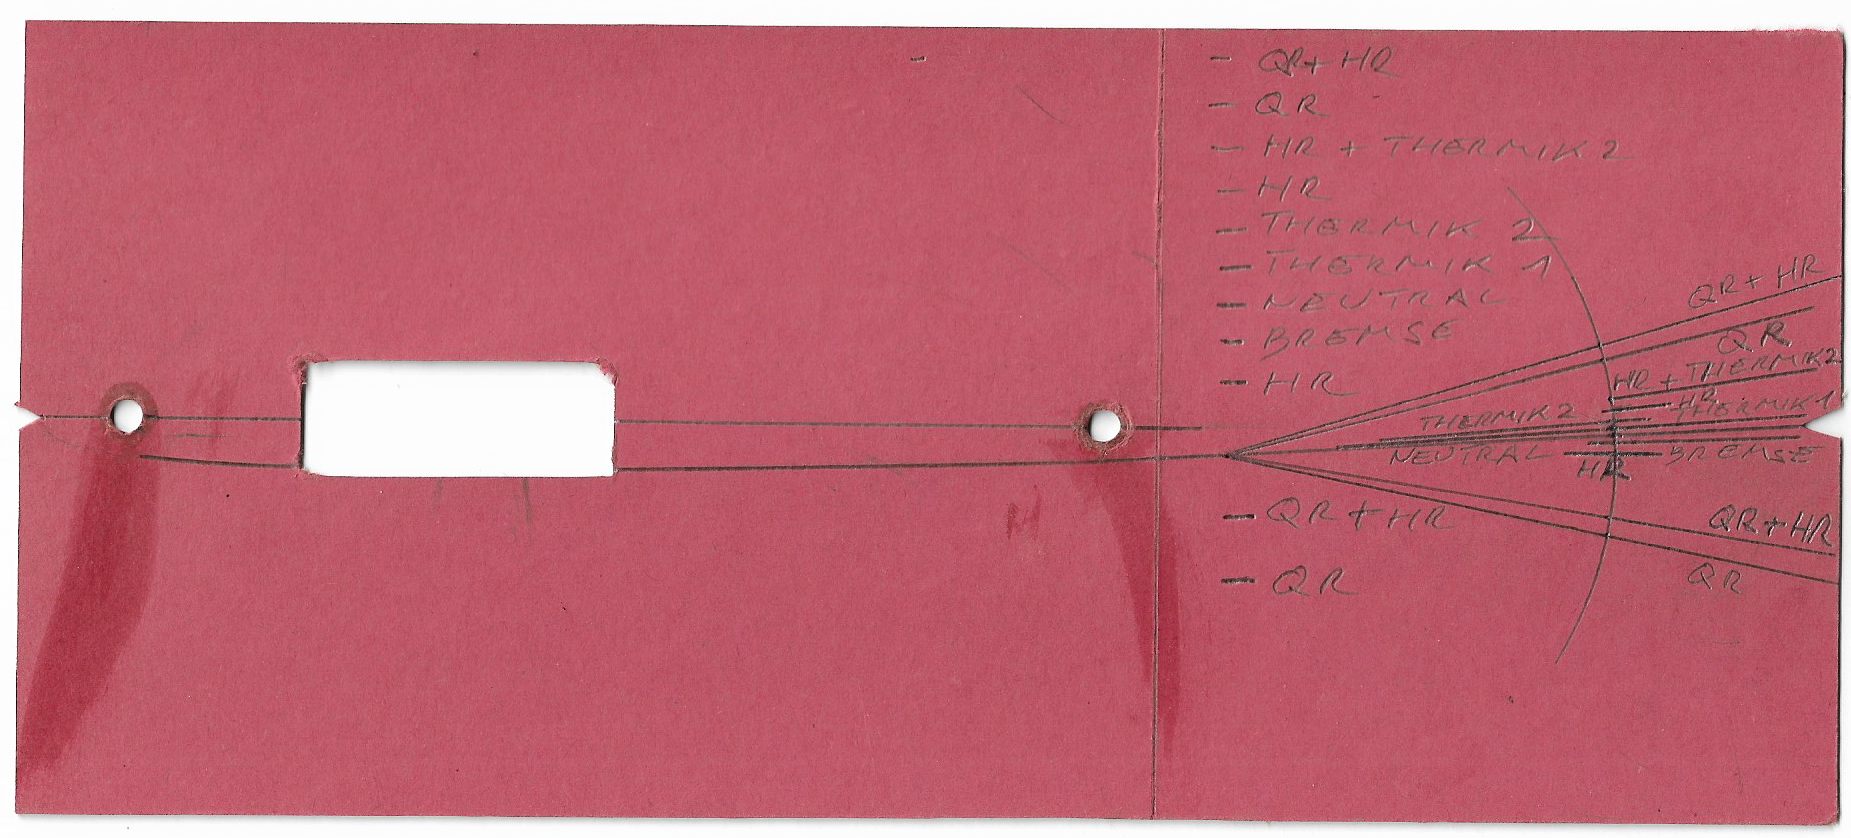 QR + HR
QR
HR + THERMIK 2
HR
THERMIK 2
THERMIK 1
NEUTRAL
BREMSE
HR
QR + HR
QR
QR + HR
QR
HR + THERMIK 2
HR
THERMIK 1
THERMIK 2
NEUTRAL
BREMSE
HR
QR + HR
QR